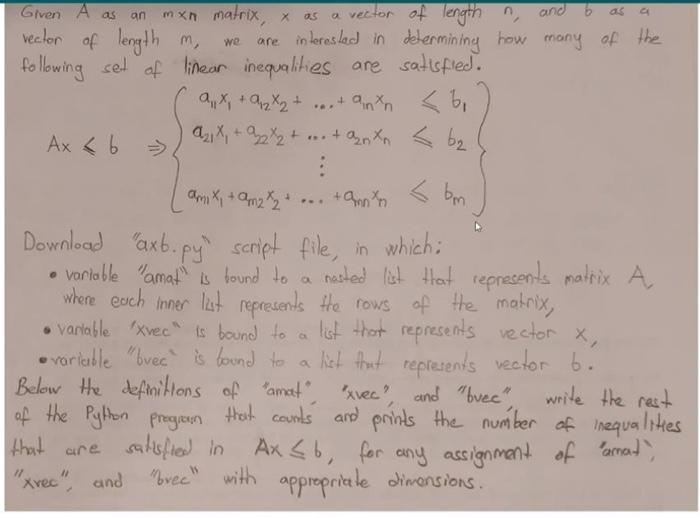 Given A as an mxn matrix, x as a vector of length n, and b as a
vector of length m, we are interested in determining how many of the
following set of linear inequalities are satisfied.
a₁₁x₁ + a₁₂x₂ + ... + a₁ₙxₙ ≤ b₁
Ax ≤ b ⇒ a₂₁x₁ + a₂₂x₂ + ... + a₂ₙxₙ ≤ b₂
⋮
aₘ₁x₁ + aₘ₂x₂ + ... + aₘₙxₙ ≤ bₘ
Download "axb.py" script file, in which:
• variable "amat" is bound to a nested list that represents matrix A,
where each inner list represents the rows of the matrix,
• variable "xvec" is bound to a list that represents vector x,
• variable "bvec" is bound to a list that represents vector b.
Below the definitions of "amat", "xvec", and "bvec", write the rest
of the Python program that counts and prints the number of inequalities
that are satisfied in Ax ≤ b, for any assignment of "amat",
"xvec", and "bvec" with appropriate dimensions.